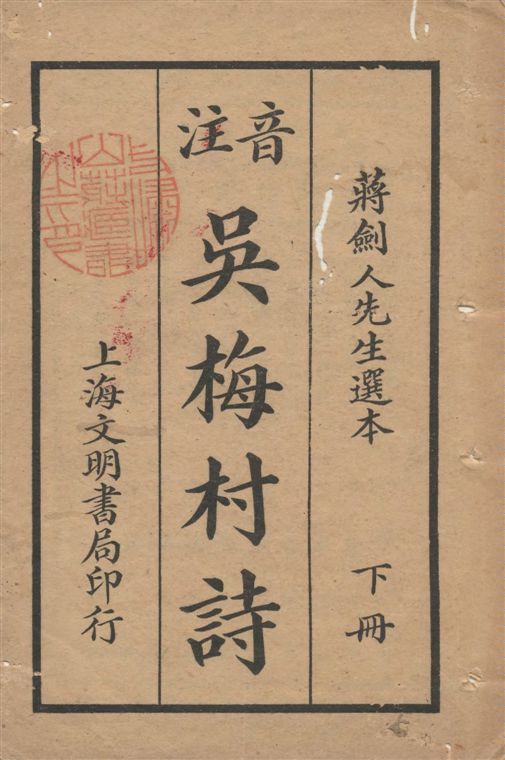 蔣劍人先生選本　下冊
音注
吳梅村詩
上海文明書局印行